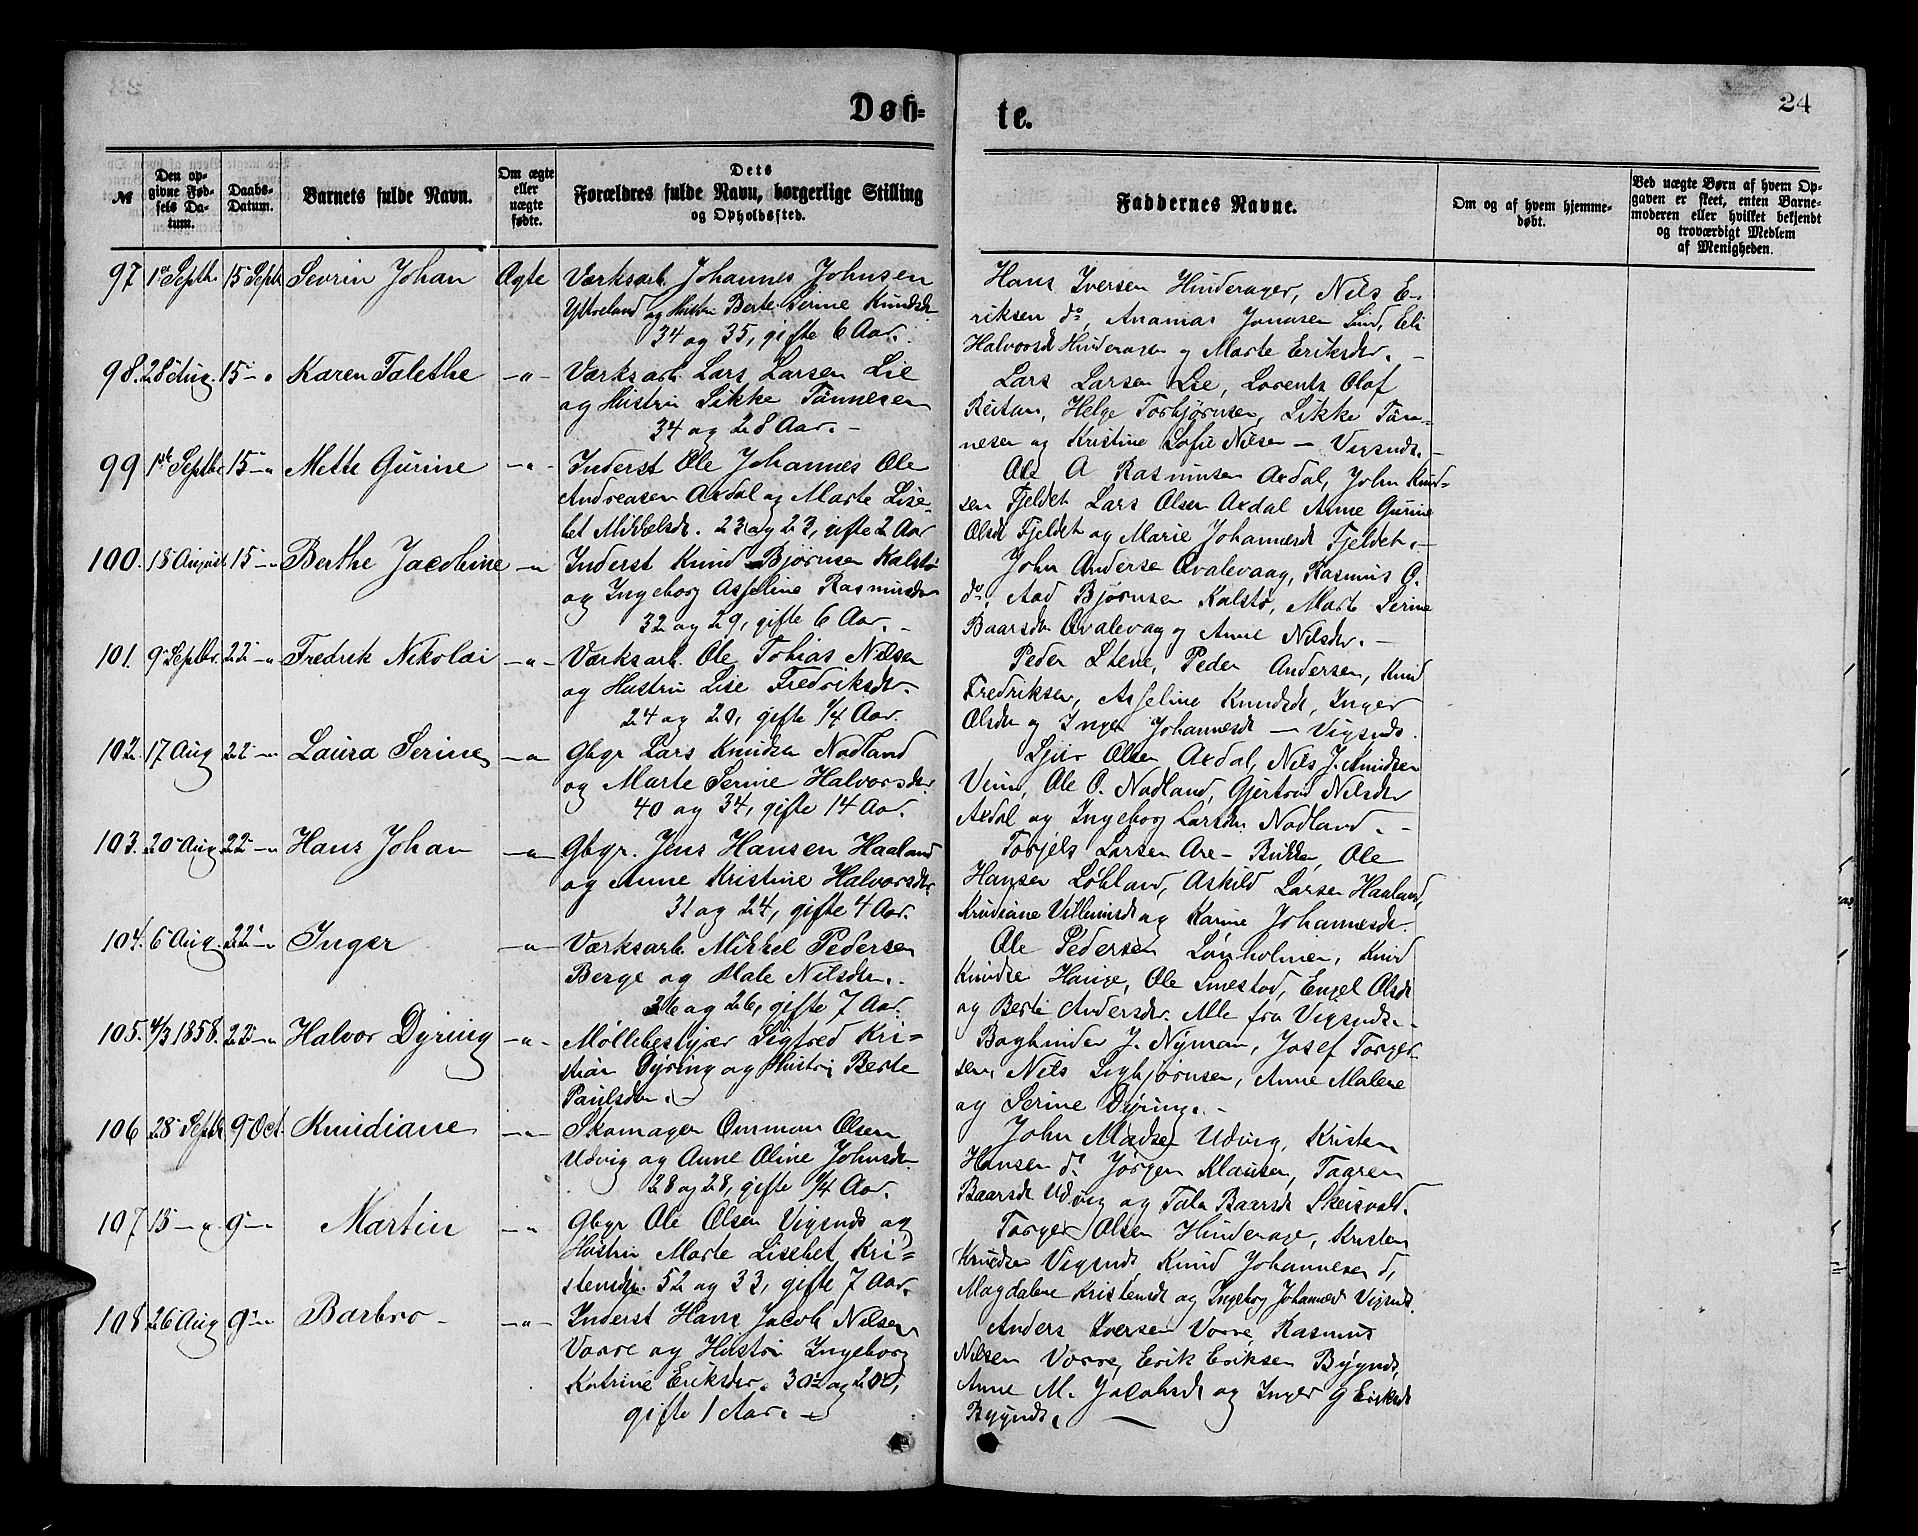 24
Døb-
te.
№
Den op-
givne Fød-
sels Da-
tum.
Daabs-
Datum.
Barnets fulde Navn.
Om ægte
eller
uægte
fødte.
Dets
Forældres fulde Navn, borgerlige Stilling
og Opholdssted.
Faddernes Navne.
Om og af hvem hjemme-
døbt.
Ved uægte Børn af hvem Op-
gaven er skeet, enten Barne-
moderen eller hvilket bekjendt
og troværdigt Medlem
af Menigheden.
97 1ste Septbr. 15 Septb Sevrin Johan Ægte Værksarb. Johannes Johnsen
Ytreland og Hustru Berte Serine Knudsdr
34 og 35, gifte 6 Aar.
Hans Iversen Hinderager, Nils E-
riksen do, Ananias Jonasen Lind, Eli
Halvorsdr Hinderager og Marte Eriksdr. -
98. 28 Aug. 15 - " Karen Talethe - " - Værksarb. Lars Larsen Lie
og Hustru Sikke Tønnesen
34 og 28 Aar. -
Lars Larsen Lie, Lorents Olaf
Reitan, Helge Torbjørnsen, Sikke Tøn-
nesen og Kristine Sofie Nilsen - Vigsnds. -
99 1ste Septbr 15 - " Mette Gurine - " - Inderst Ole Johannes Ole
Andreasen Axdal og Marte Lise-
bet Mikkelsdr. 23 og 23, gifte 2 Aar
Ole A Rasmusen Axdal, John Knud-
sen Fjeldet Lars Olsen Axdal Anne Gurine
Olsdr Fjeldet og Marie Johannesdr Fjeldet. -
100. 18 August 15 - " Berthe Jacobine - " Inderst Knud Bjørnsen Kalstø
og Ingeborg Asseline Rasmusdr
32 og 29, gifte 6 Aar. -
John Andersen Qvalevaag, Rasmus O.
do, Aad Bjørnsen Kalstø, Marte Serine
Baarsdr Qvalevag og Anne Nilsdr. -
101. 9 Septbr. 22 - " Fredrik Nikolai - " - Værksarb. Ole Tobias Nilsen
og Hustru Lise Fredriksdr.
24 og 20, gifte 1/4 Aar.
Peder Stene, Peder Andersen, Knud
Fredriksen, Asseline Knudsdr, Inger
Olsdr og Inger Johannesdr - Vigsnds.
102. 17 Aug 22 - " Laura Serine - " Gbgr Lars Knudsen Nodland
og Marte Serine Halvorsdr
40 og 34, gifte 14 Aar.
Sjur Olsen Axdal, Nils J. Knudsen
Veim, Ole O. Nodland, Gjertrud Nilsdr
Axdal og Ingeborg Larsdr. Nodland. -
103. 20 Aug 22 - " Hans Johan - " - Gbgr. Jens Hansen Haaland
og Anne Kristine Halvorsdr
31 og 24, gifte 4 Aar.
Torjels Larsen Are - Bukken, Ole
Hansen Løkland, Askild Larsen Haaland,
Knudiane Villumsdr og Karine Johannesdr.
104. 6 Aug. 22 - " Inger - " - Værksarb. Mikkel Pedersen
Berge og Male Nilsdr.
26 og 26, gifte 7 Aar.
Ole Pedersen Lønholmen, Knud
Knudsen Hauge, Ole Smestad, Engel Olsdr
og Berte Andersdr. Alle fra Vigsnds. -
105. 4/3 1858. 22 - " Halvor Dyring - " - Møllebestyrer Sigfred Kri-
stian Dyring og Hustru Berte
Paulsdr. -
Bogbinder J. Nyman, Josef Torger-
sen, Nils Sigbjørnsen, Anne Malene
og Serine Dyring. -
106 28 Septbr 9 Oct. Knudiane - " - Skomager Ommon Olsen
Udvig og Anne Oline Johnsdr.
28 og 28, gifte 1/4 Aar.
John Madsen Udvig, Kristen
Hansen do. Jørgen Klausen, Taaren
Baarsdr Udvig og Tala Baarsdr Skeisvold.
107 15 - " 9 - " Martin - " Gbgr Ole Olsen Vigsnds og
Hustru Marte Lisebet Kri-
stensdr. 52 og 33, gifte 7 Aar.
Torger Olsen Hinderager, Kristen
Knudsen Vigsnds Knud Johannesen do,
Magdalene Kristensdr og Ingeborg Johannesdr Vigsnds.
108 26 Aug 9 - " Barbro - - " - Inderst Hans Jacob Nilsen
Vorre og Hustru Ingeborg
Katrine Eriksdr. 30 og 20,
gifte 1 Aar. -
Anders Iversen Vorre Rasmus
Nilsen Vorre, Erik Eriksen Bygnds,
Anne M. Jacobsdr og Inger G Eriksdr
Bygnds. -